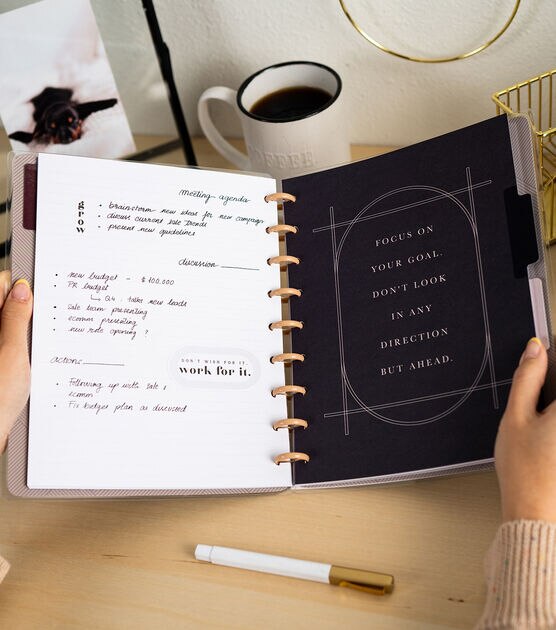 COFFEE.
meeting agenda
grow
• brainstorm new ideas for new campaign
• discuss current sale trends
• present new guidelines
discussion
• new budget - $100.000
• PR budget
↳ Q4 : take new leads
• sale team presenting
• ecomm presenting
• new role opening ?
actions
DON'T WISH FOR IT.
work for it.
• Following up with sale &
ecomm
• Fix budget plan as discussed
FOCUS ON
YOUR GOAL.
DON'T LOOK
IN ANY
DIRECTION
BUT AHEAD.